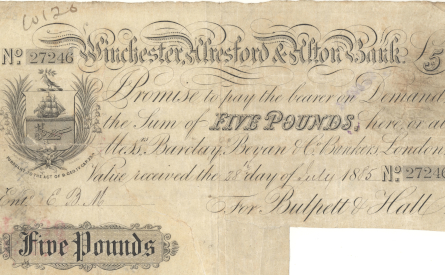 No 27246 Winchester, Alresford & Alton Bank. £5
Promise to pay the bearer on Demand
the Sum of FIVE POUNDS, here or at
Messrs. Barclay, Bevan & Co. Bankers London
Value received the 28th day of July 18 5 No 27246
Ent. E B M For Bulpett & Hall
Five Pounds